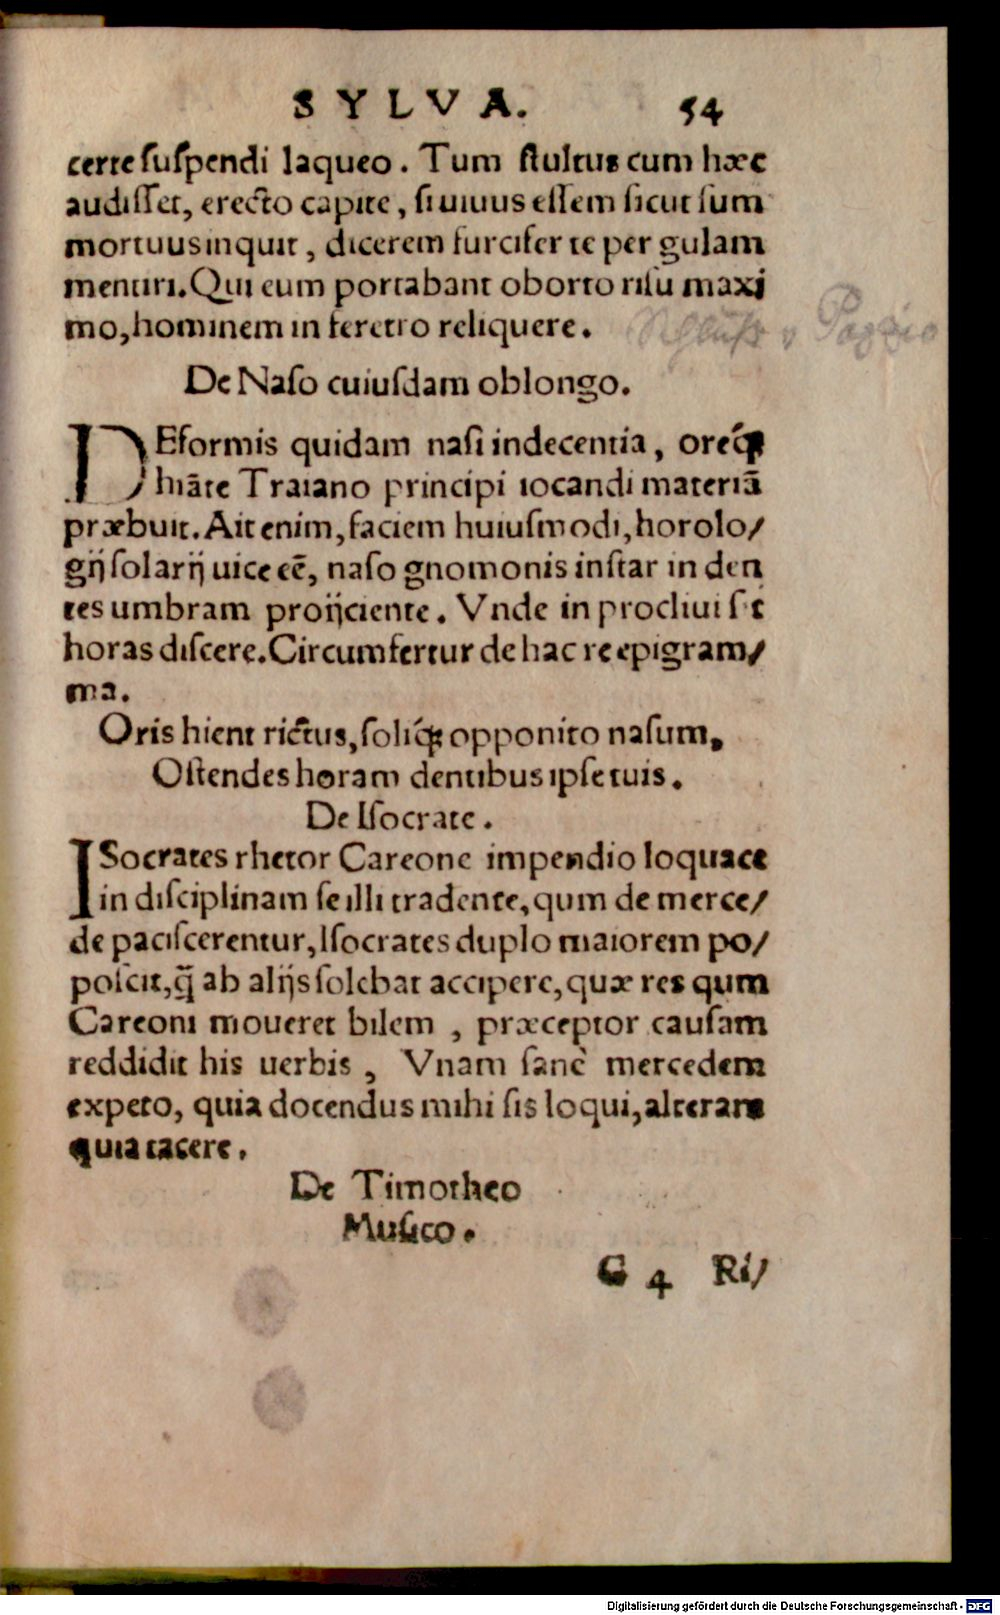 SYLVA. 54
certe suſpendi laqueo. Tum ſtultus cum hæc
audiſſet, erecto capite, ſi uiuus eſſem ſicut ſum
mortuus inquit, dicerem furcifer te per gulam
mentiri. Qui eum portabant oborto riſu maxi
mo, hominem in feretro reliquere.
Schluſs v Poggio
De Naſo cuiuſdam oblongo.
DEformis quidam naſi indecentia, oreq́ꝫ
hiãte Traiano principi iocandi materiã
præbuit. Ait enim, faciem huiuſmodi, horolo/
gij ſolarij uice eē, naſo gnomonis inſtar in den
tes umbram proijciente. Vnde in procliui ſit
horas diſcere. Circumfertur de hac re epigram/
ma.
Oris hient rictus, ſoliq́ꝫ opponito naſum,
Oſtendes horam dentibus ipſe tuis.
De Iſocrate.
ISocrates rhetor Careone impendio loquace
in diſciplinam ſe illi tradente, qum de merce/
de paciſcerentur, Iſocrates duplo maiorem po/
poſcit, q̃ ab alijs ſolebat accipere, quæ res qum
Careoni moueret bilem, præceptor cauſam
reddidit his uerbis, Vnam ſanè mercedem
expeto, quia docendus mihi ſis loqui, alteram
quia tacere.
De Timotheo
Muſico.
G 4 Ri/
Digitalisierung gefördert durch die Deutsche Forschungsgemeinschaft - DFG